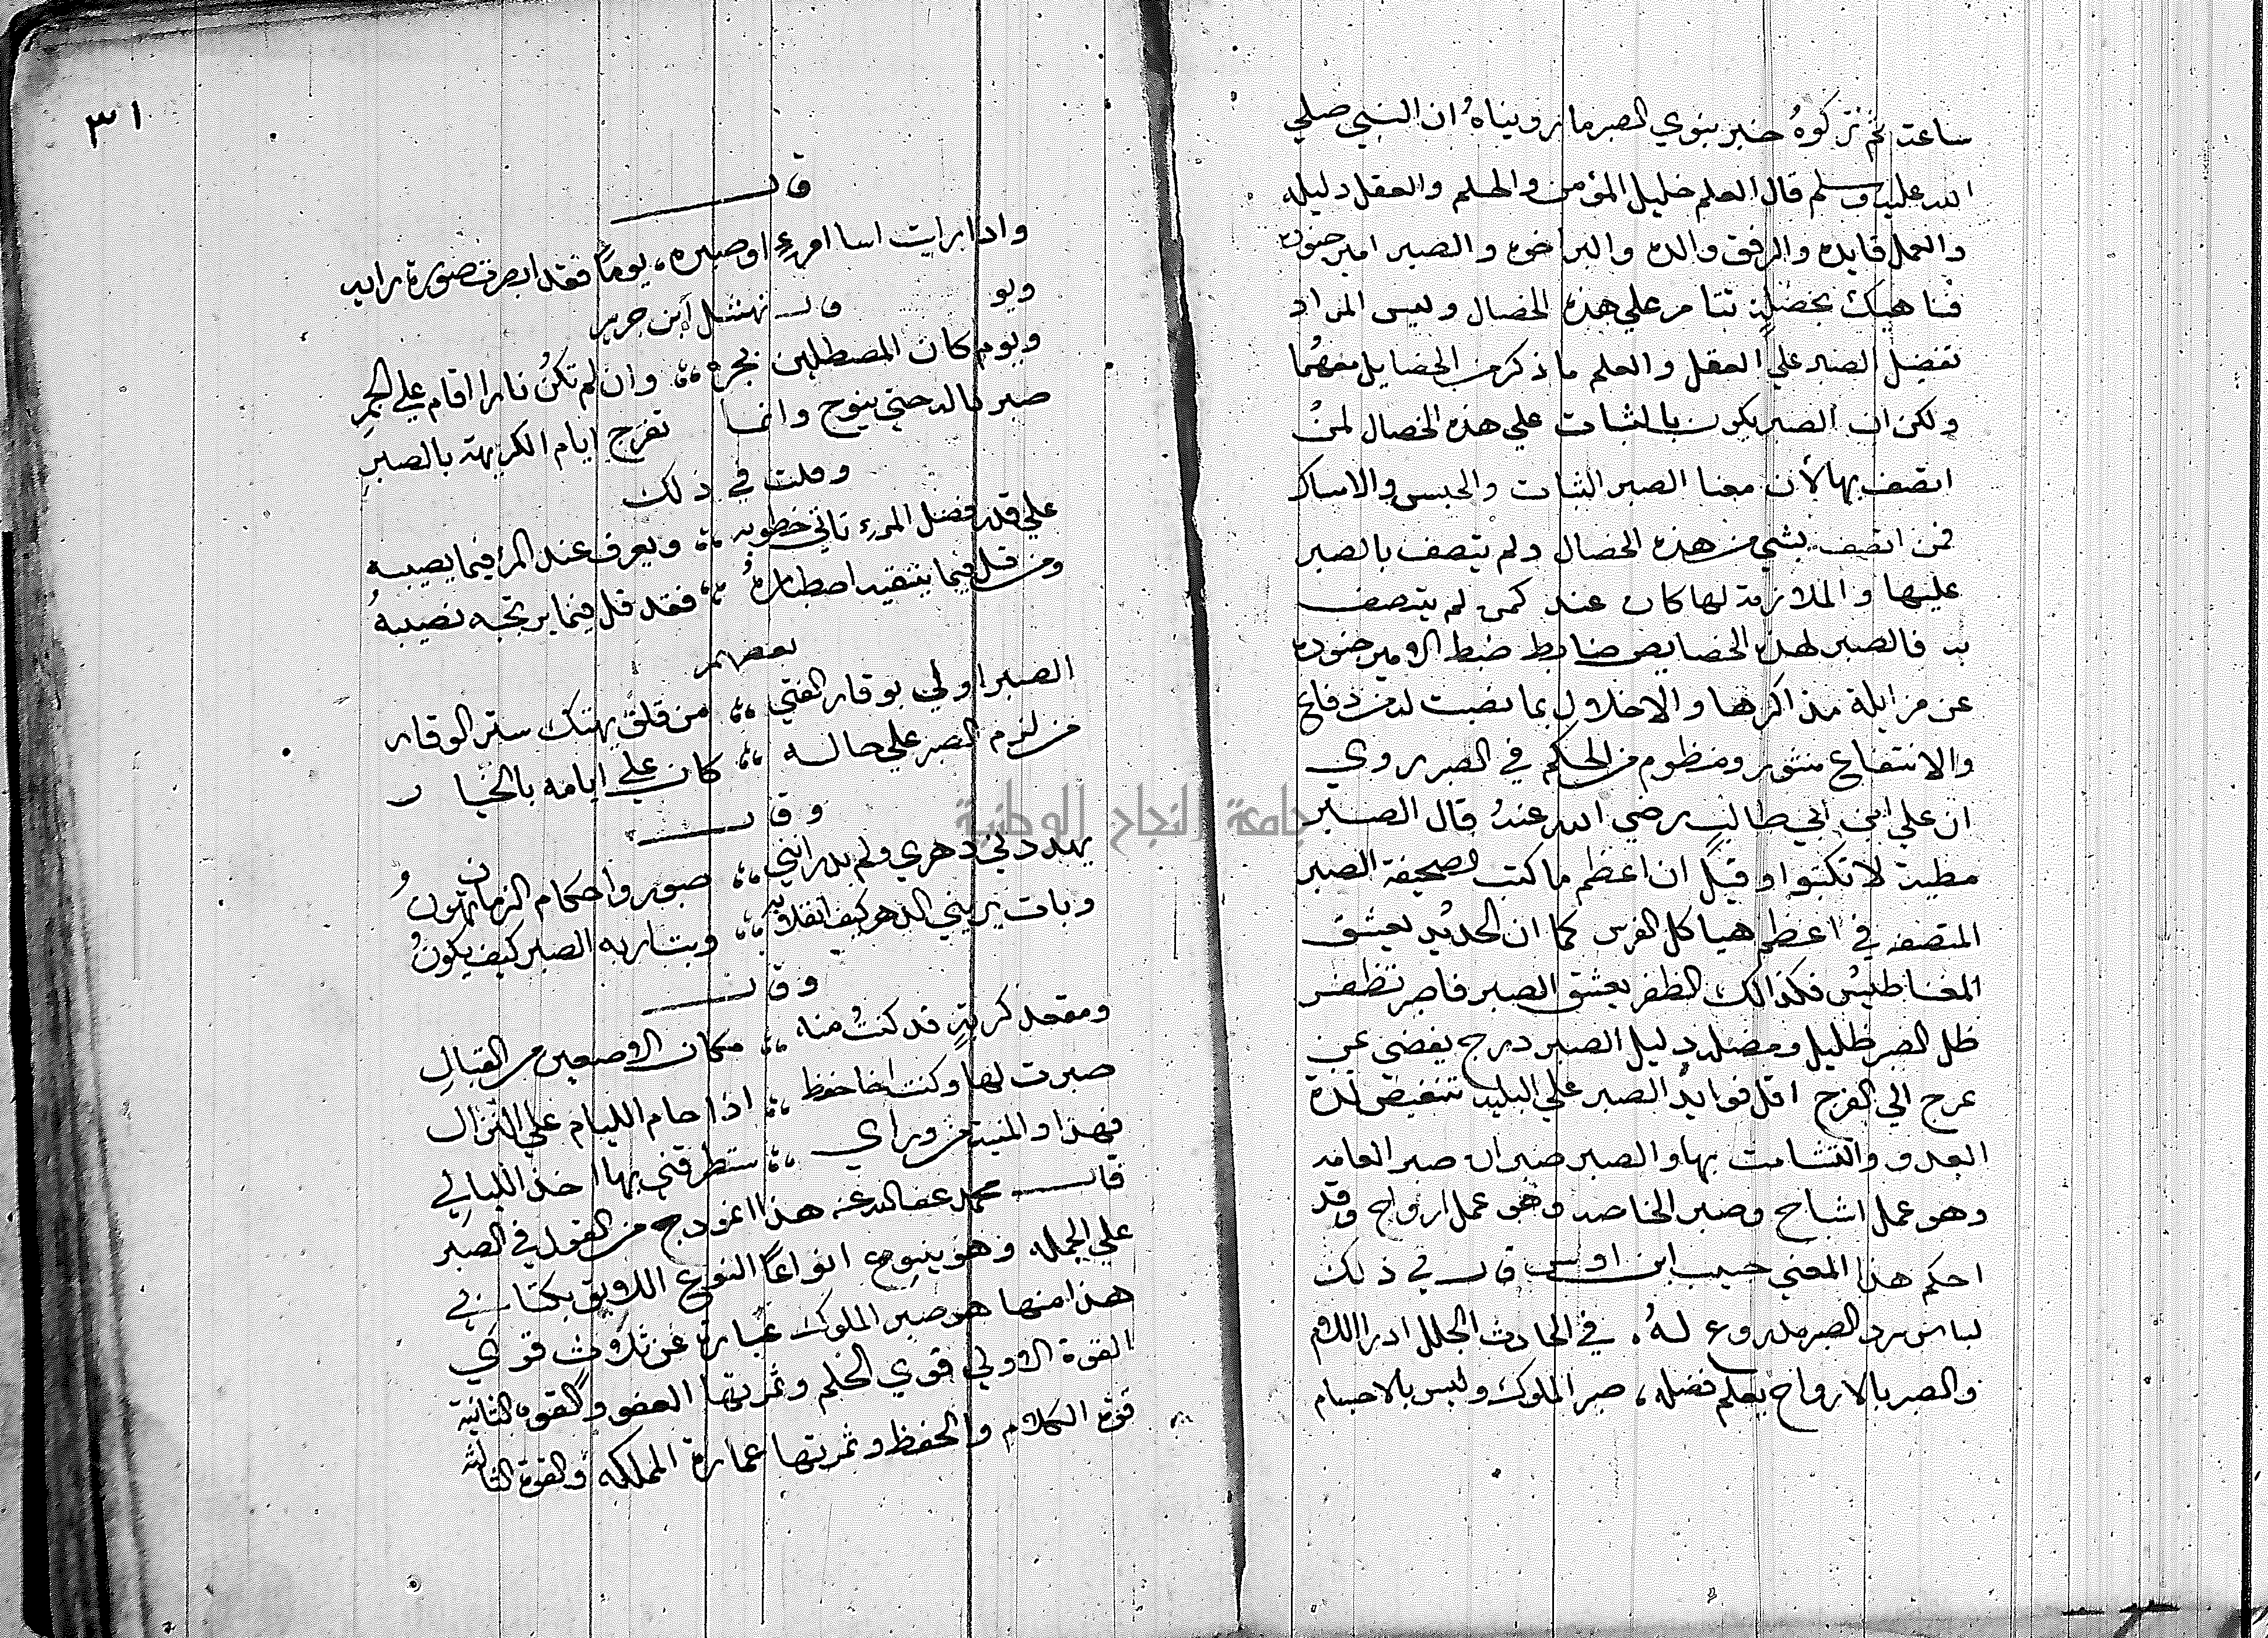 ساعته ثم تركوه خبر بنوي الصبر ما رويناه ان النبي صلي
الله عليه وسلم قال العلم خليل المؤمن والحلم والعقل دليله
والعمل قايده والرفق والده والبر اخوه والصبر امير جنوده
فناهيك بخصلة تتامر علي هذه الخصال وليس المراد
تفضيل الصبر علي العقل والعلم ما ذكر من الخصايل معهما
ولكن ان الصبر يكون بالثبات علي هذه الخصال لمن
اتصف بها لأن معنا الصبر الثبات والحبس والامساك
فمن اتصف بشي من هذه الخصال ولم يتصف بالصبر
عليها والملازمة لها كان عند كمن لم يتصف
به فالصبر لهذه الخصايص ضابط ضبط الامير جنوده
عن مزايلة مذاكرها والاخلال بما نصبت له من دفاع
والانتفاع منثور ومنظوم من الحكم في الصبر روي
ان علي ابن ابي طالب رضي الله عنه قال الصبر
مطية لا تكبوا وقيل ان اعظم ما كتب صحيفة الصبر
المتصفه في اعظم هياكل الفرس كما ان الحديد يعشق
المغناطيس فكذالك الظفر يعشق الصبر فاصبر تظفر
ظل الصبر ظليل وفضله دليل الصبر درج يفضي عن
عرج الي الفرج اقل فوايد الصبر علي البليه تنغيص لذة
العدو والتشامت بها والصبر صبران صبر العامه
وهو عمل اشباح وصبر الخاصه وهو عمل ارواح وقد
احكم هذا المعني حبيب ابن اوس قال في ذلك
لباس سرد الصبر مدروع له، في الحادث الجلل ادرا اللام
والصبر بالارواح يعلم فضله، صبر الملوك وليس بالاجسام
٣١
قال
واذا رايت اسا امرءٍ او صبره، يومًا فقد ابصرت صورة رايه
ويو قال نهشل ابن حرير
ويوم كان المصطلين بحره ؛؛ وان لم تكن نارا اقام علي الجمرِ
صبرنا له حتي ينوح وانما تفرج ايام الكريهة بالصبرِ
وقلت في ذلك
علي قدر فضل المرء تاتي خطوبه ؛؛ ويعرف عند المرء فيما يصيبه
ومن قل فيما يتقيه اصطباره ؛؛ فقد قل فيما يرتجيه نصيبه
بعضهم
الصبر اولي بوقار الفتي ؛؛ من قلق يهتك ستر الوقار
من لزم الصبر علي حاله ؛؛ كان علي ايامه بالخيار
وقال
يهددني دهري ولم يدر انني ؛؛ صبور واحكام الزمان تهون
وبات يريني الدهر كيف انقلابه ؛؛ وبت اريه الصبر كيف يكون
وقال
ومقعد كربةٍ قد كنت منه ؛؛ مكان الاصبعين من القبالِ
صبرت لها وكنت اخا حفظ ؛؛ اذا حام الليام علي النزال
فهذا والمنية من وراي ؛؛ ستطرقني بها احد الليالي
قال محمد عفا الله عنه هذا انموذج من القول في الصبر
علي الجمله وهو ينبوع انواعًا النوع اللايق بكتابي
هذا منها هو صبر الملوك عبارة عن ثلاث قوي
القوة الاولي قوي الحلم وثمرتها العفو والقوه الثانية
قوة الكلام والحفظ وثمرتها عمارة المملكه والقوة الثالثه
جامعة النجاح الوطنية